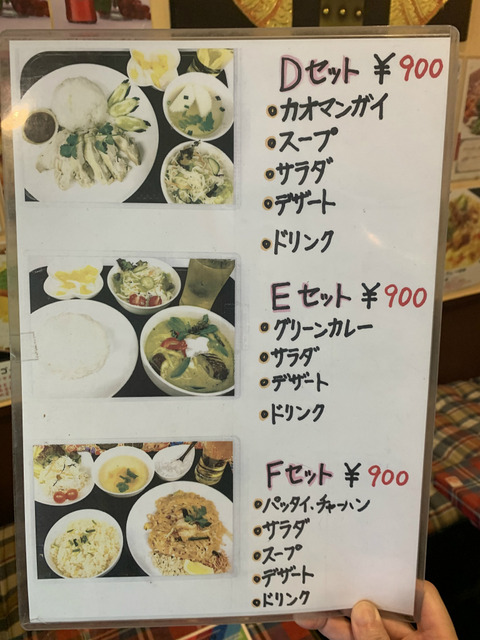 Dセット ¥900
カオマンガイ
スープ
サラダ
デザート
ドリンク
Eセット ¥900
グリーンカレー
サラダ
デザート
ドリンク
Fセット ¥900
パッタイ、チャーハン
サラダ
スープ
デザート
ドリンク